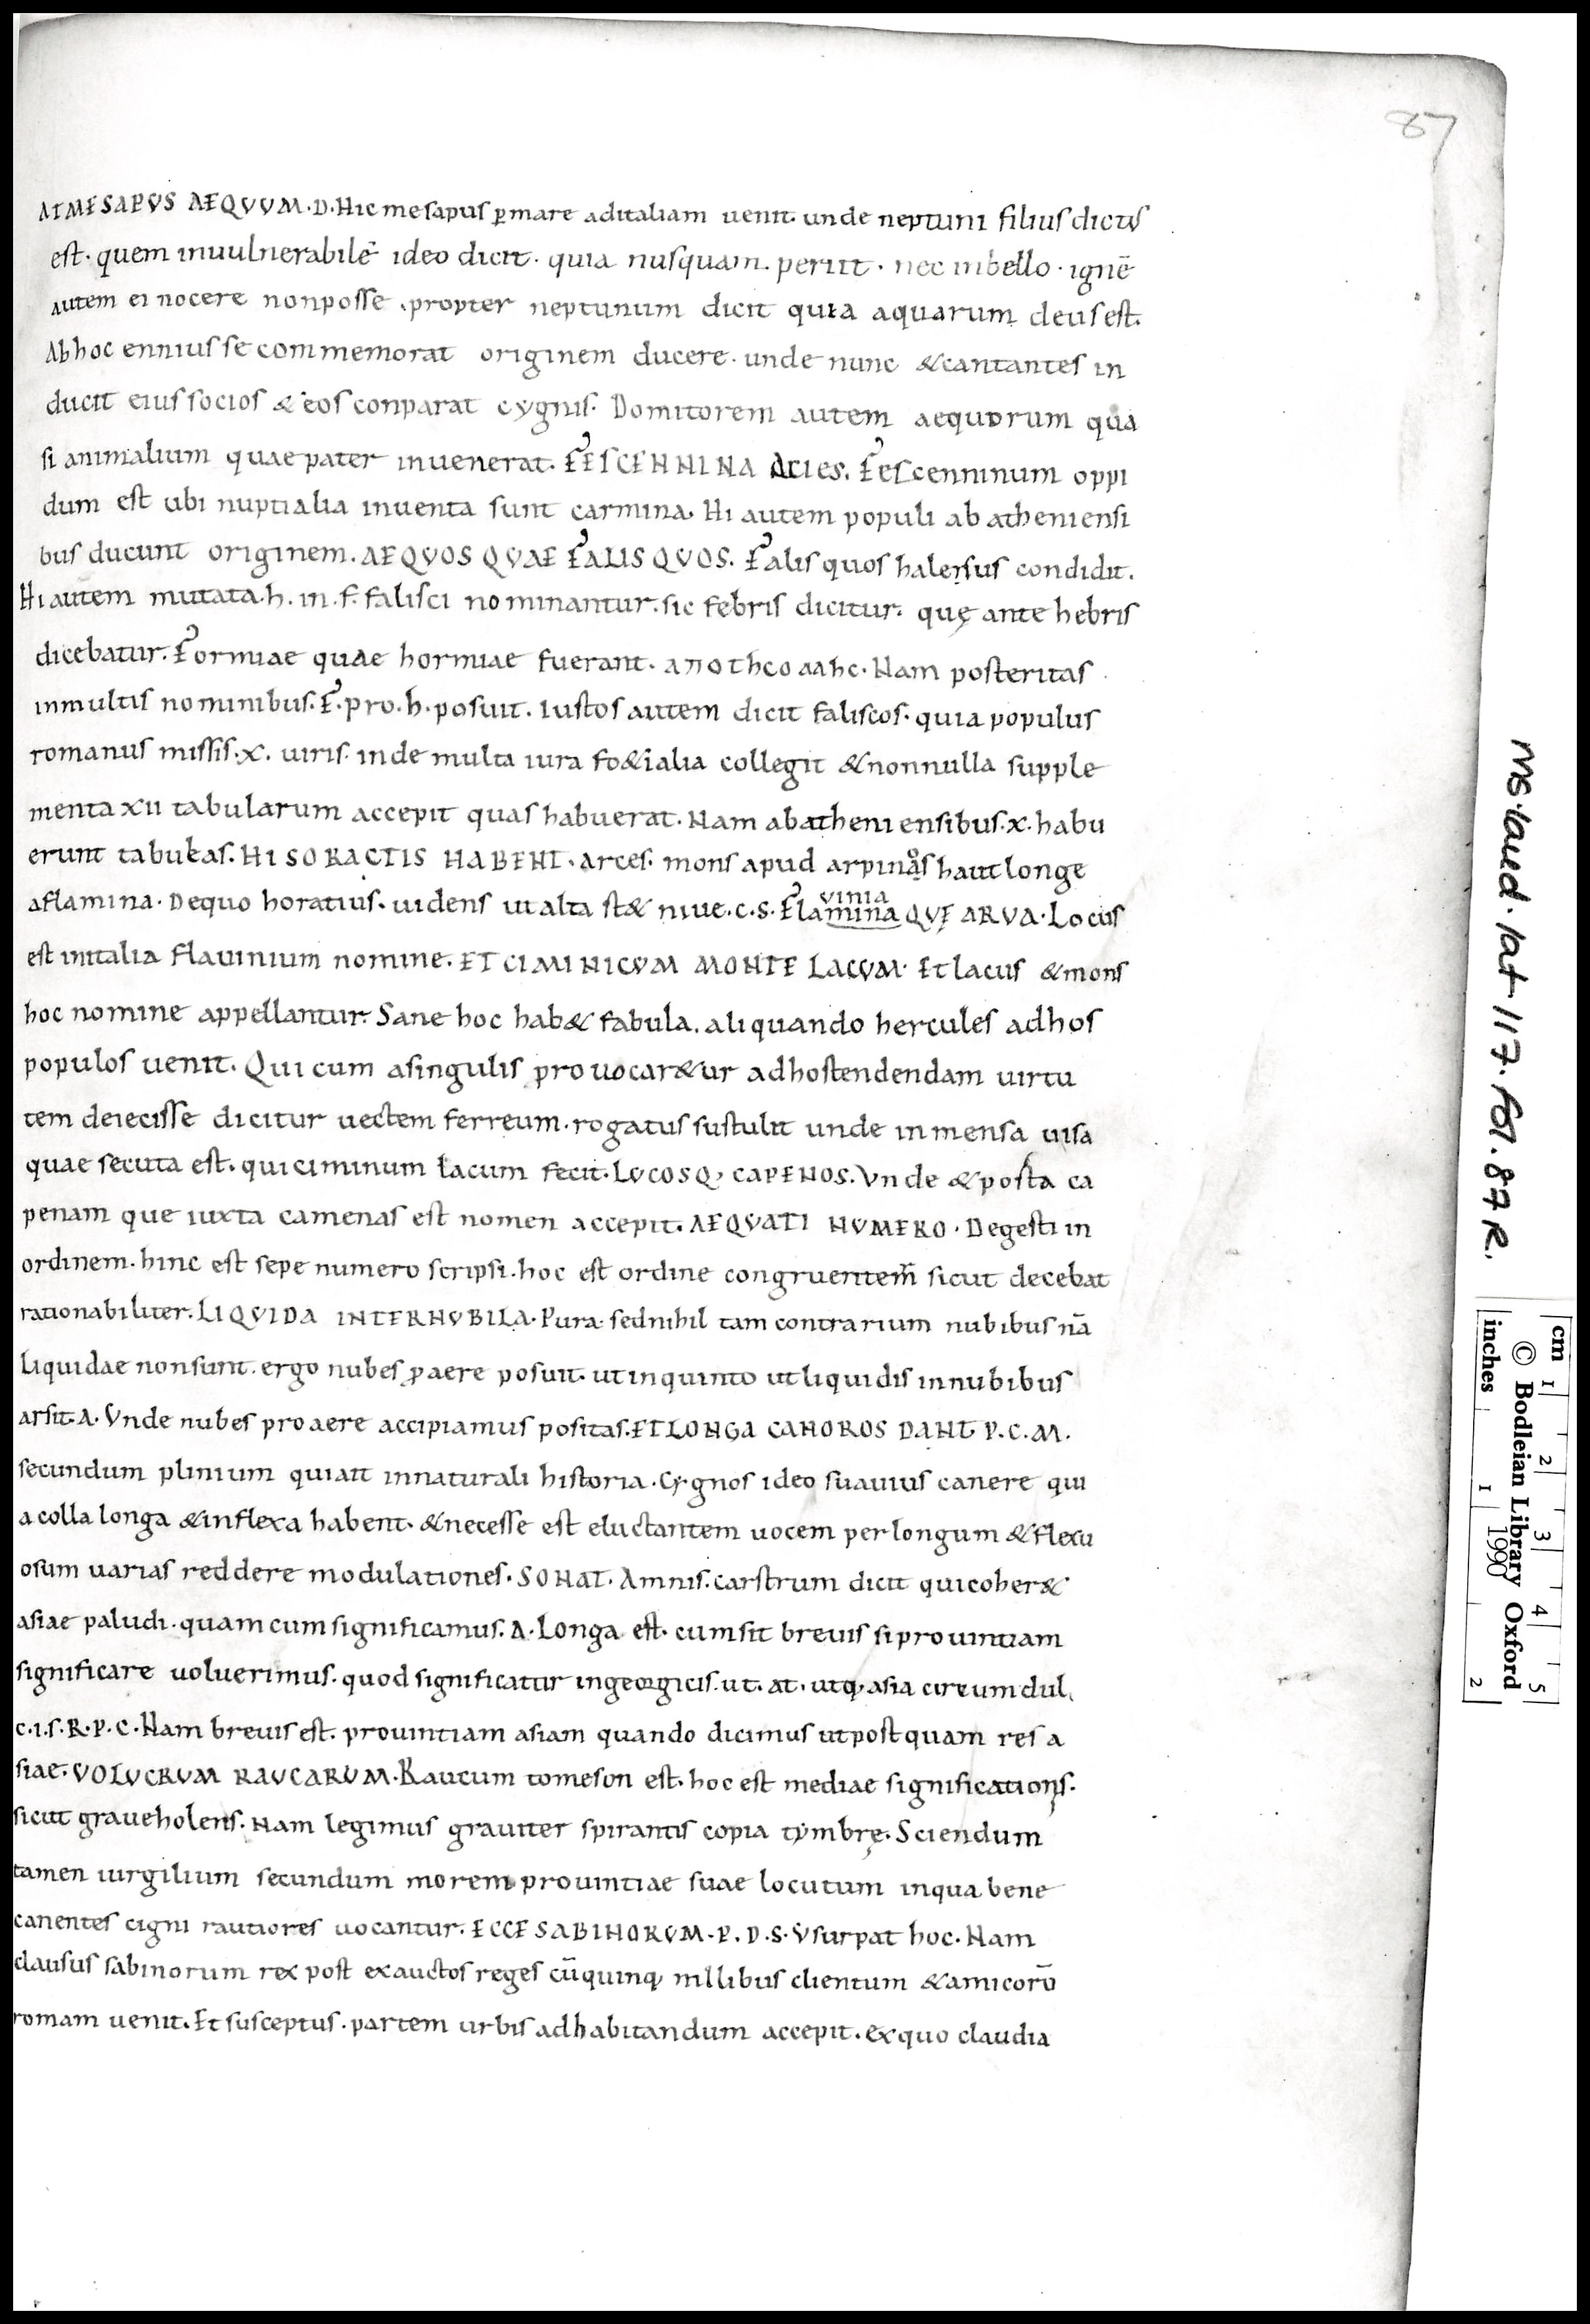 87
ATMESAPUS AEQVVM. D. Hic mesapus ꝑmare aditaliam uenit. unde neptuni filius dictus
est. quem inuulnerabilē ideo dicit. quia nusquam. periit. nec inbello. ignē
autem ei nocere nonposse. propter neptunum dicit quia aquarum deus est.
Abhoc ennius se commemorat originem ducere. unde nunc &cantantes in
ducit eius socios & eos conparat cygnis. Domitorem autem aequorum qua
si animalium quae pater inuenerat. FESCENNINA ACIES. Fescenninum oppi
dum est ubi nuptialia inuenta sunt carmina. Hi autem populi ab atheniensi
bus ducunt originem. AEQVOS QVAE FALIS QVOS. Falis quos halesus condidit.
Hi autem mutata. h. in. f. falisci nominantur. sic febris dicitur. quę ante hebris
dicebatur. Formiae quae hormiae fuerant. Nam posteritas
inmultis nominibus. F. pro. h. posuit. iustos autem dicit faliscos. quia populus
romanus missis. x. uiris. inde multa iura fo&ialia collegit &nonnulla supple
menta xii tabularum accepit quas habuerat. Nam abatheniensibus. x. habu
erunt tabulas. HI SORACTIS HABENT. arces. mons apud arpinos haut longe
aflamina. Dequo horatius. uidens ut alta st& niue. c. s. Flamina vinia QVE ARVA. Locus
est initalia flauinium nomine. ET CIMINICVM MONTE LACVM. Et lacus &mons
hoc nomine appellantur. Sane hoc hab& fabula. aliquando hercules adhos
populos uenit. Qui cum asingulis prouocar&ur adhostendendam uirtu
tem deiecisse dicitur uectem ferreum. rogatus sustulit unde inmensa uisa
quae secuta est. qui ciminum lacum fecit. LVCOSQ; CAPENOS. Vnde &posta ca
penam que iuxta camenas est nomen accepit. AEQVATI NVMERO. Degesti in
ordinem. hinc est sepe numero scripsi. hoc est ordine congruentem̄ sicut decebat
rationabiliter. LIQVIDA INTERNVBILA. Pura. sednihil tam contrarium nubibus nā
Liquidae nonsunt. ergo nubes ꝓaere posuit. ut inquinto ut liquidis innubibus
arsit. A. Vnde nubes proaere accipiamus positas. ET LONGA CANOROS DANT. P. C. M.
secundum plinium qui att innaturali historia. Cygnos ideo suauius canere qui
a colla longa &inflexa habent. &necesse est eluctantem uocem per longum &flexu
osum uarias reddere modulationes. SONAT. Amnis. carstrum dicit qui coher&
asiae paludi. quam cum significamus. A. Longa est. cum sit breuis si prouintiam
significare uoluerimus. quod significatur ingeorgicis. ut. at. utq; asia circum dul
c. i. s. R. P. C. Nam breuis est. prouintiam asiam quando dicimus ut postquam res a
siae. VOLVCRVM RAVCARVM. Raucum tomeson est. hoc est mediae significationis.
sicut graueholens. Nam legimus grauiter spirantis copia tymbrę. Sciendum
tamen uirgilium secundum morem prouintiae suae locutum inqua bene
canentes cigni rautiores uocantur. ECCE SABINORVM. P. D. S. Vsurpat hoc. Nam
clausus sabinorum rex post exauctos reges cū quinq; millibus clientum &amicorū
romam uenit. Et susceptus. partem urbis adhabitandum accepit. ex quo claudia
MS. Laud. lat 117. fol. 87 R.
cm 1 2 3 4 5
© Bodleian Library Oxford
1990
inches 1 2